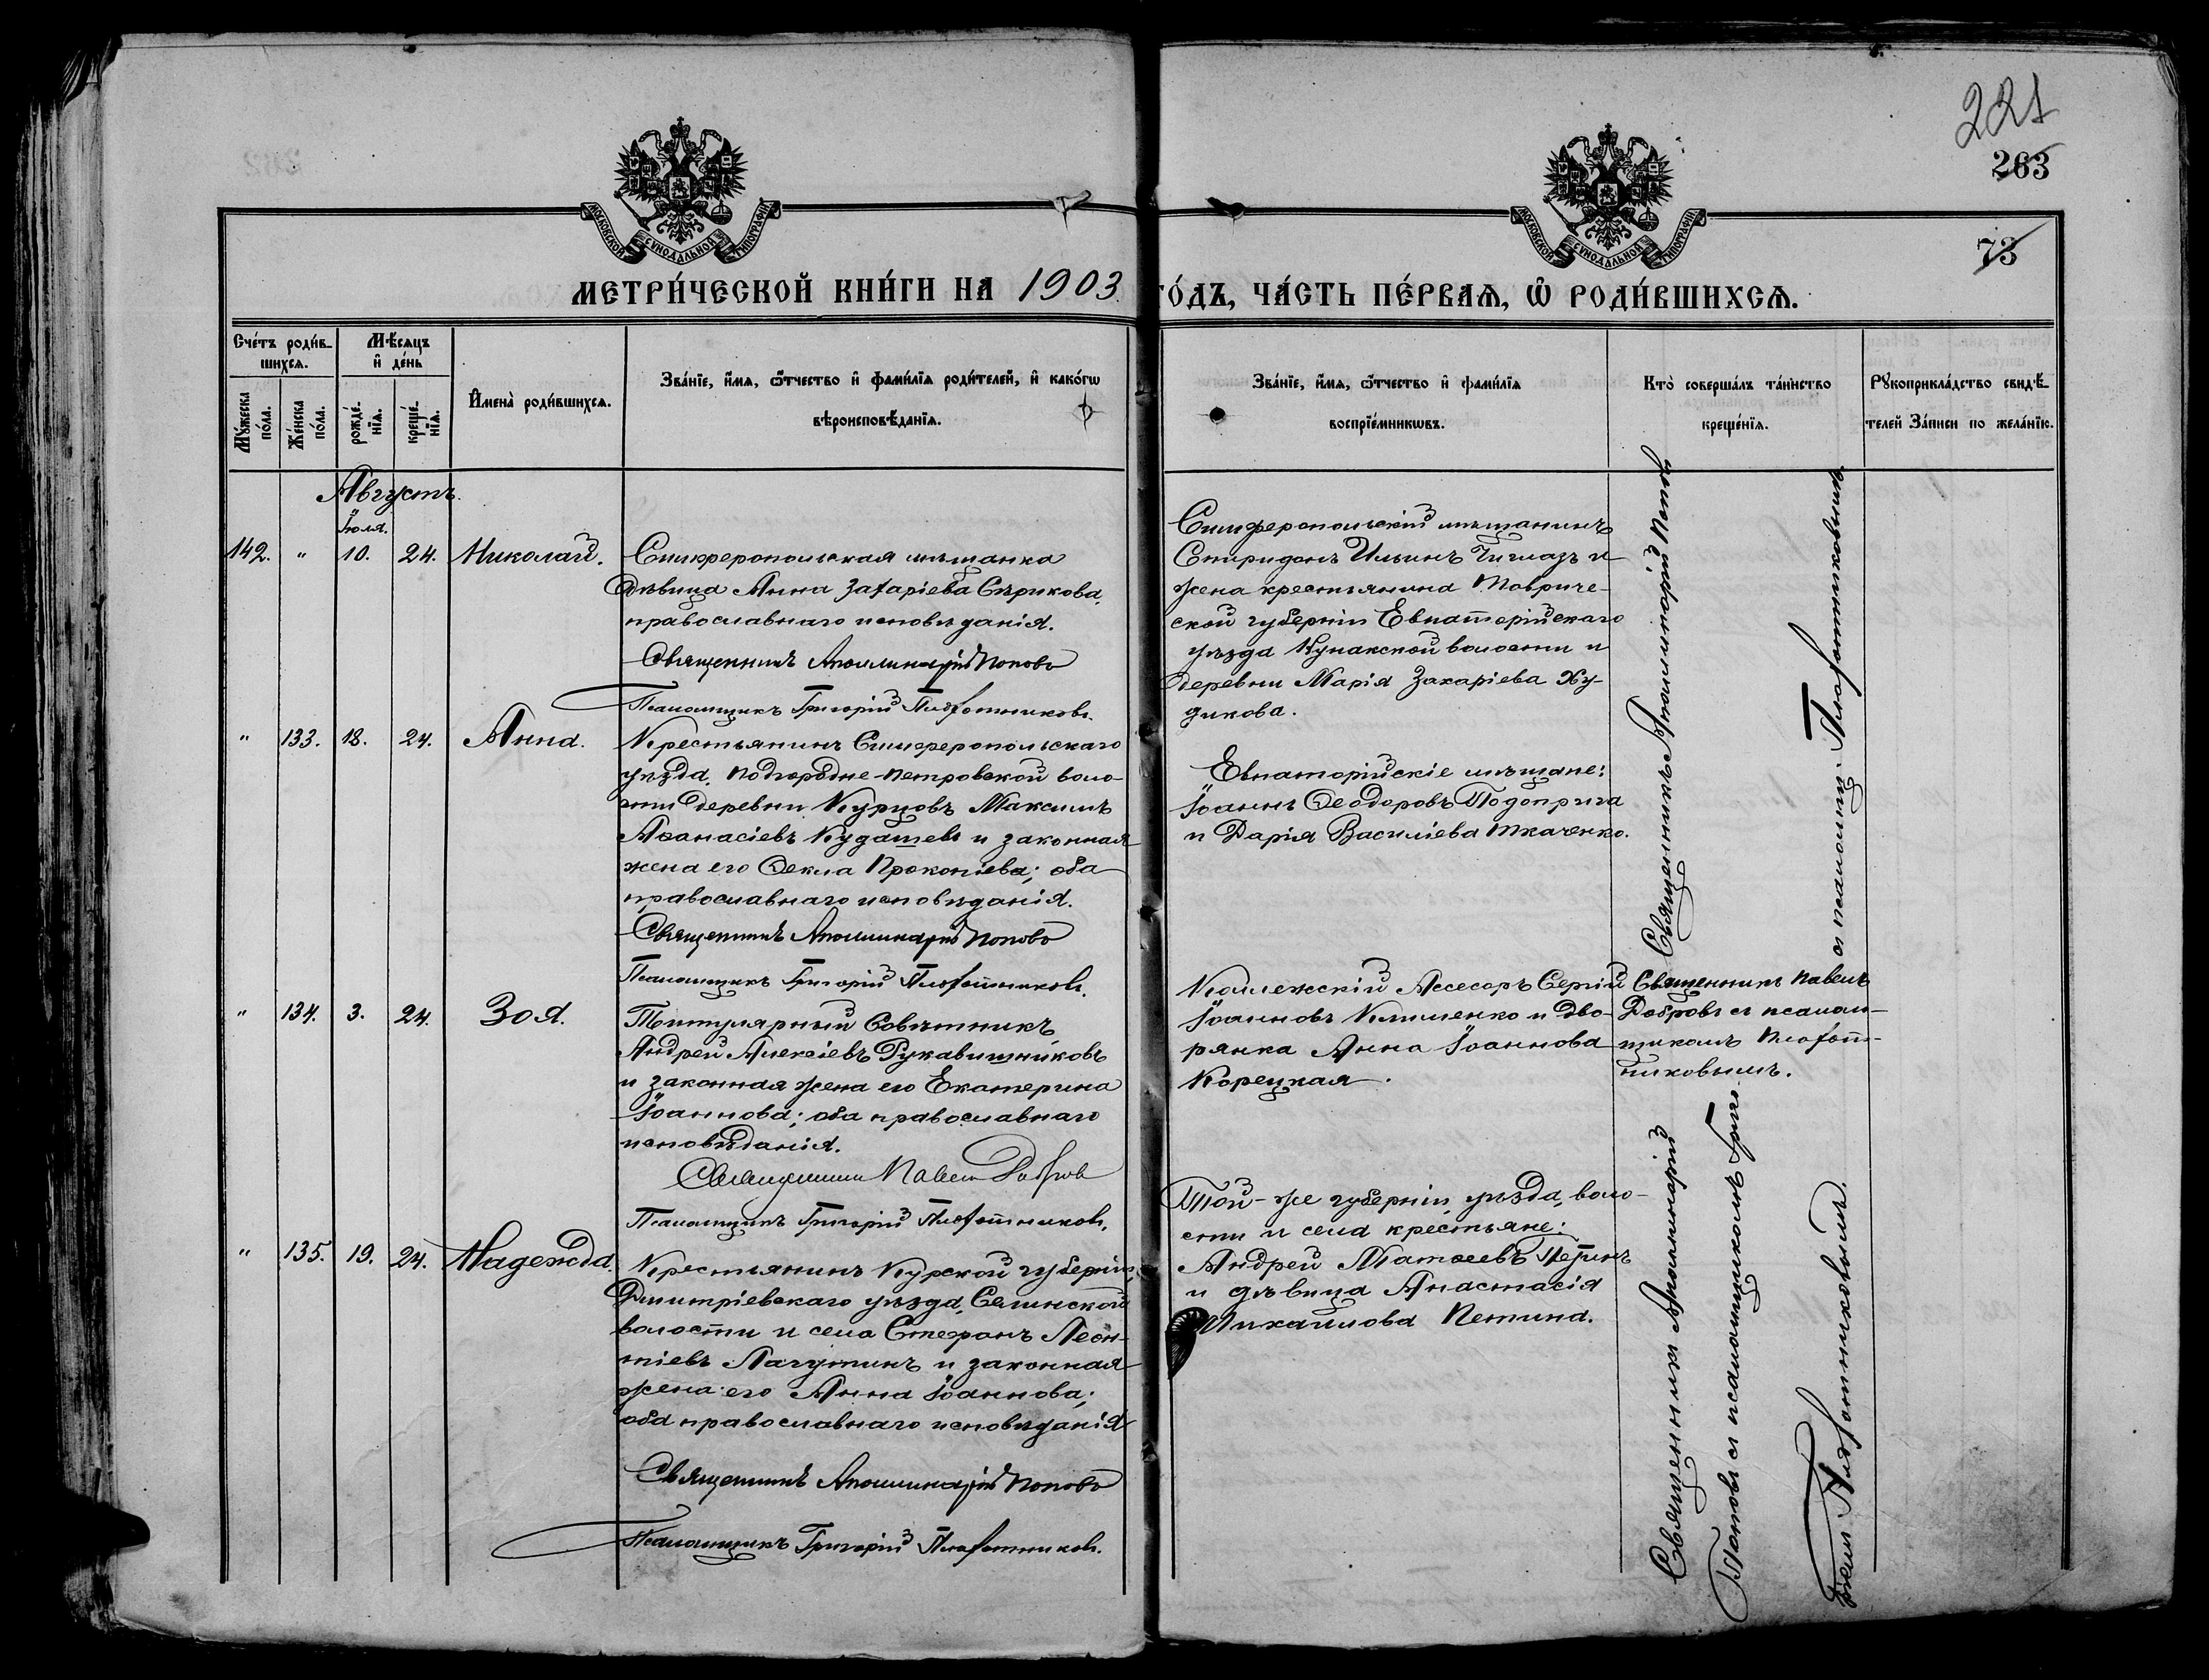 221
263
73
МОСКОВСКОЙ СѴНОДАЛЬНОЙ ТИПОГРАФІИ
МОСКОВСКОЙ СѴНОДАЛЬНОЙ ТИПОГРАФІИ
МЕТРИ́ЧЕСКОЙ КНИ́ГИ НА 1903 ГО́ДЪ, ЧА́СТЬ ПЕ́РВАѦ, Ѡ҆ РОДИ́ВШИХСѦ.
Сче́тъ роди́в-
шихсѧ.
Мꙋ́жеска по́ла.
Же́нска по́ла.
Мѣ́сѧцъ
и҆ де́нь
рожде́-
нїѧ.
креще́-
нїѧ.
И҆мена̀ роди́вшихсѧ.
Зва́нїе, и҆́мѧ, ѻ҆́тчество и҆ фами́лїѧ роди́телей, и҆ како́гѡ
вѣроисповѣ́данїѧ.
Зва́нїе, и҆́мѧ, ѻ҆́тчество и҆ фами́лїѧ
воспрїе́мникѡвъ.
Кто̀ соверша́лъ та́инство
креще́нїѧ.
Рꙋкоприкла́дство свидѣ́-
телей За́писи по жела́нїю.
Августъ.
Іюля.
142. " 10. 24. Николай.
Симферопольская мѣщанка
дѣвица Анна Захаріева Сѣрикова,
православнаго исповѣданія.
Священникъ Аполлинарій Поповъ
Псаломщикъ Григорій Плохотниковъ.
Симферопольскій мѣщанинъ
Спиридонъ Ильинъ Чиглазъ и
жена крестьянина Тавриче-
ской губерніи Евпаторійскаго
уѣзда Кунакской волости и
деревни Марія Захаріева Ху-
дикова.
" 133. 18. 24. Анна.
Крестьянинъ Симферопольскаго
уѣзда, Подгородне-Петровской воло-
сти деревни Курцовъ Максимъ
Аѳанасіевъ Кудашевъ и законная
жена его Ѳекла Прокопіева; оба
православнаго исповѣданія.
Священникъ Аполлинарій Поповъ
Псаломщикъ Григорій Плохотниковъ.
Евпаторійскіе мѣщане:
Іоаннъ Ѳеодоровъ Подоприга
и Дарія Василіева Ткаченко.
Священникъ Аполлинарій Поповъ
съ псаломщ. Плохотниковымъ.
" 134. 3. 24. Зоя.
Титулярный Совѣтникъ
Андрей Алексіевъ Рукавишниковъ
и законная жена его Екатерина
Іоаннова; оба православнаго
исповѣданія.
Священникъ Павелъ Добровъ
Псаломщикъ Григорій Плохотниковъ.
Коллежскій Ассесоръ Сергій
Іоанновъ Клименко и дво-
рянка Анна Іоаннова
Корецкая.
Священникъ Павелъ
Добровъ съ псалом-
щикомъ Плохот-
никовымъ.
" 135. 19. 24. Надежда.
Крестьянинъ Курской губерніи,
Дмитріевскаго уѣзда, Селинской
волости и села Стефанъ Леон-
тіевъ Лагутинъ и законная
жена его Анна Іоаннова;
оба православнаго исповѣданія
Священникъ Аполлинарій Поповъ
Псаломщикъ Григорій Плохотниковъ.
Той-же губерніи, уѣзда, воло-
сти и села крестьяне:
Андрей Матѳеевъ Петинъ
и дѣвица Анастасія
Михаилова Петина.
Священникъ Аполлинарій
Поповъ съ псаломщикомъ Григо-
ріемъ Плохотниковымъ.